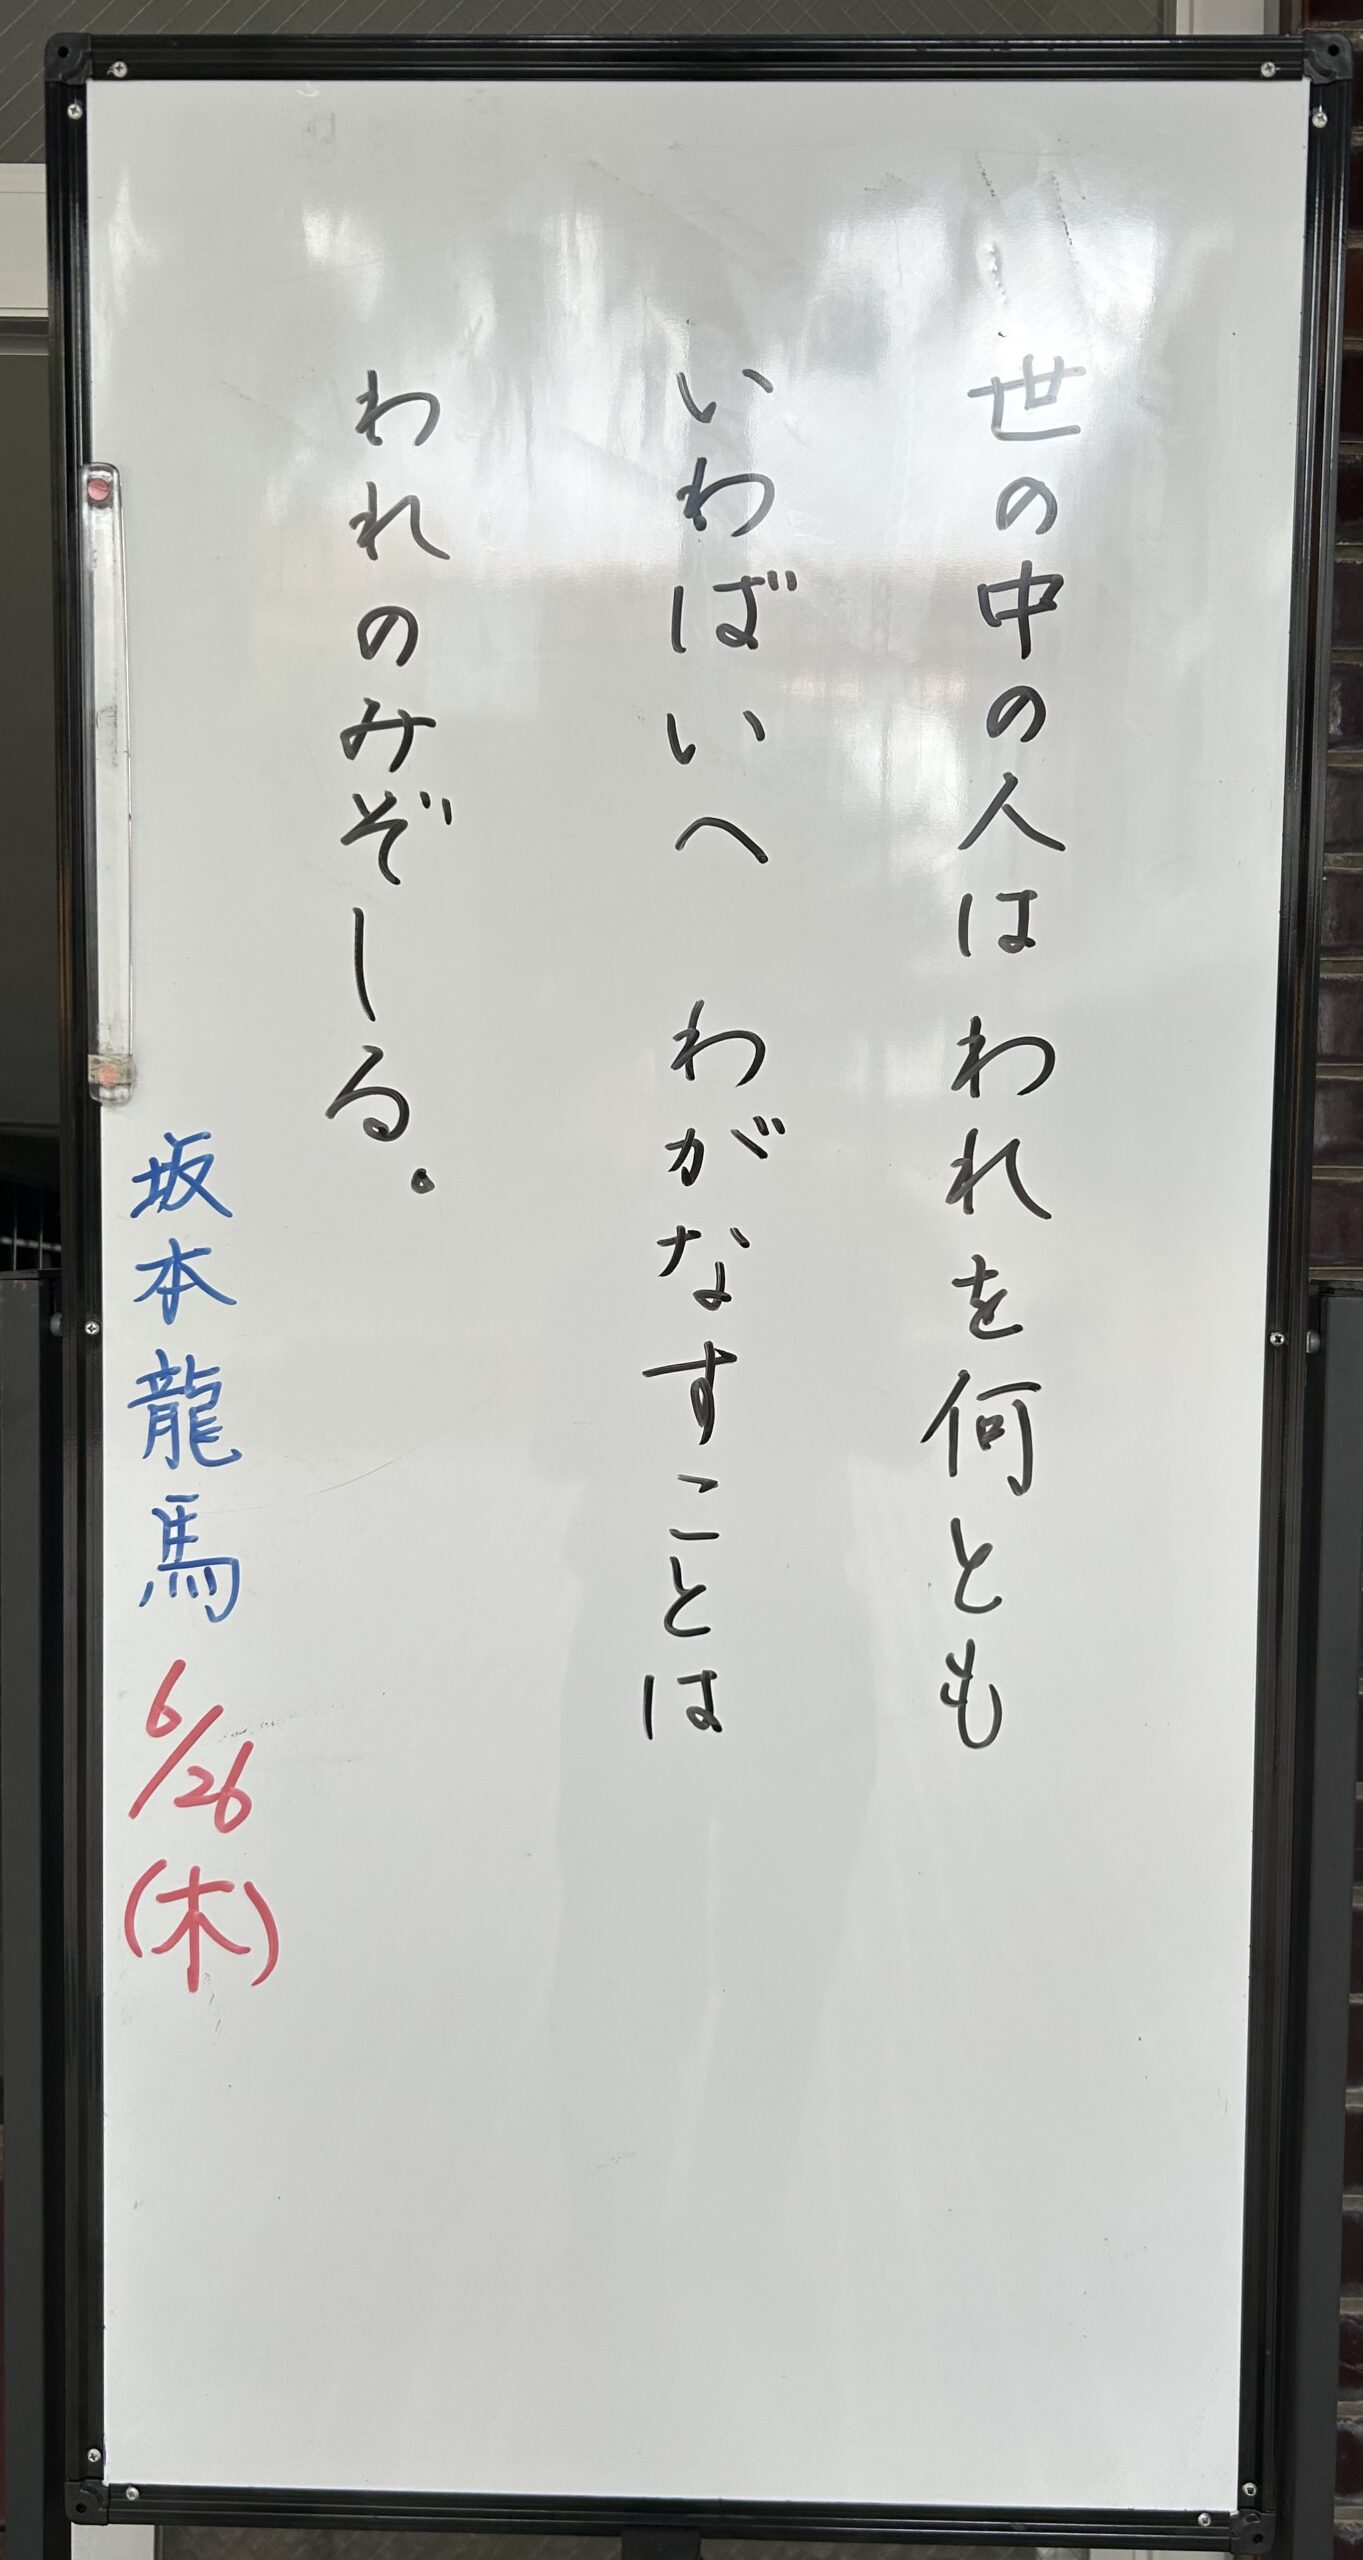 世の中の人はわれを何とも
いわばいへ わがなすことは
われのみぞしる.
坂本龍馬 6/26(木)